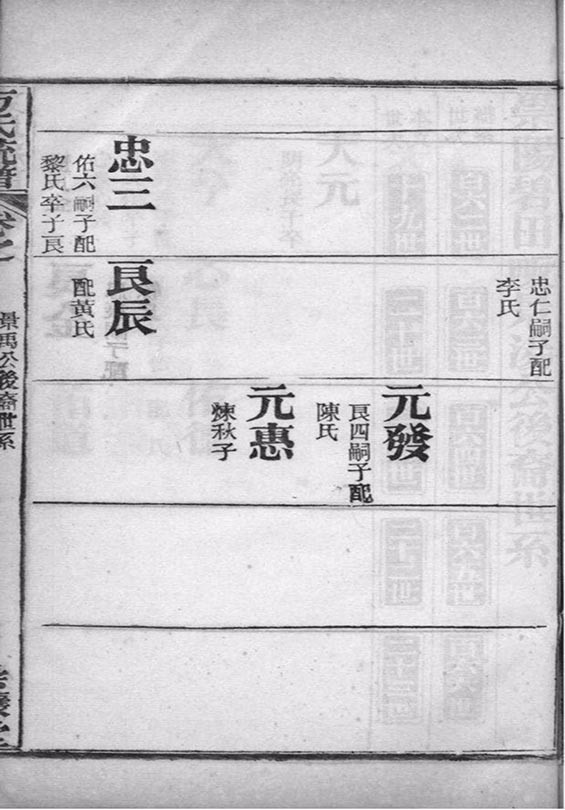 忠三
佑六嗣子配
黎氏卒子艮
忠仁嗣子配
李氏
艮辰
配黃氏
元發
艮四嗣子配
陳氏
元惠
煉秋子
方氏統譜
景禹公後裔世系